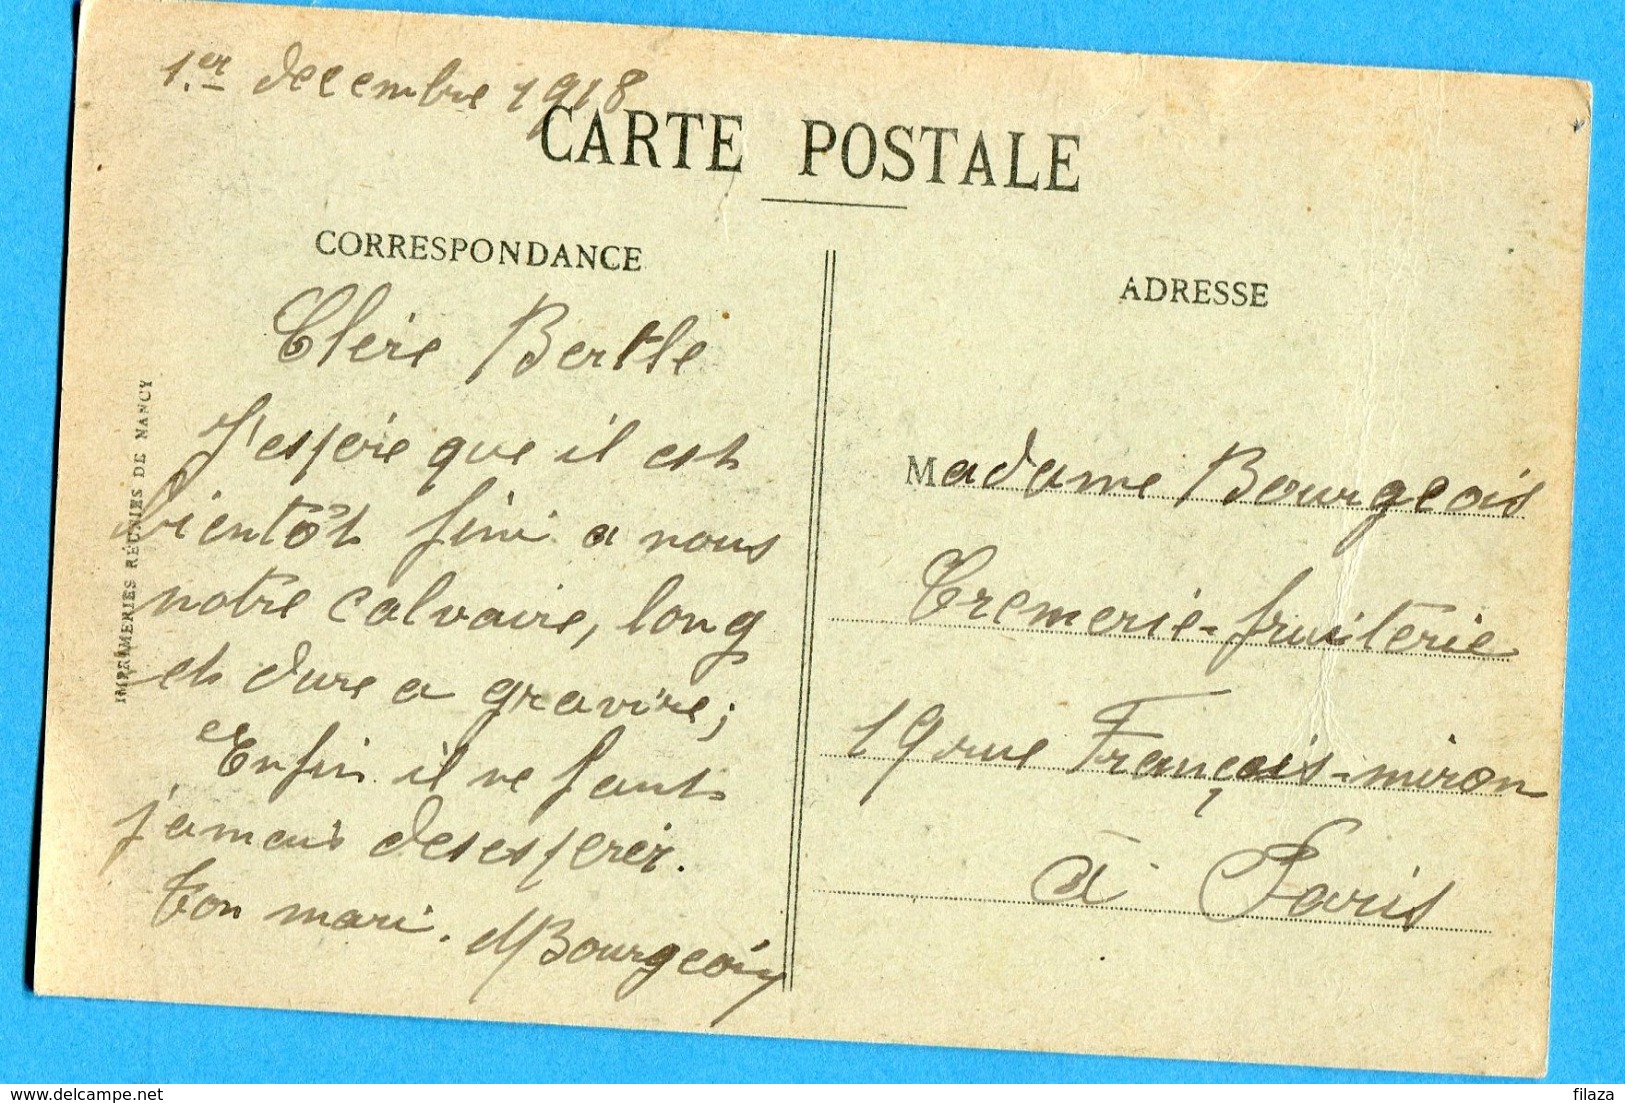 1.er decembre 1918
CARTE POSTALE
CORRESPONDANCE
Chère Berthe
J'espère que il est
bientôt fini a nous
notre calvaire, long
et dure a gravire;
Enfin il ne faut
jamais desesperer.
ton mari. MBourgeois
IMPRIMERIES RÉUNIES DE NANCY
ADRESSE
Madame Bourgeois
Cremerie-fruiterie
19 rue François-miron
à Paris
delcampe.net
filaza